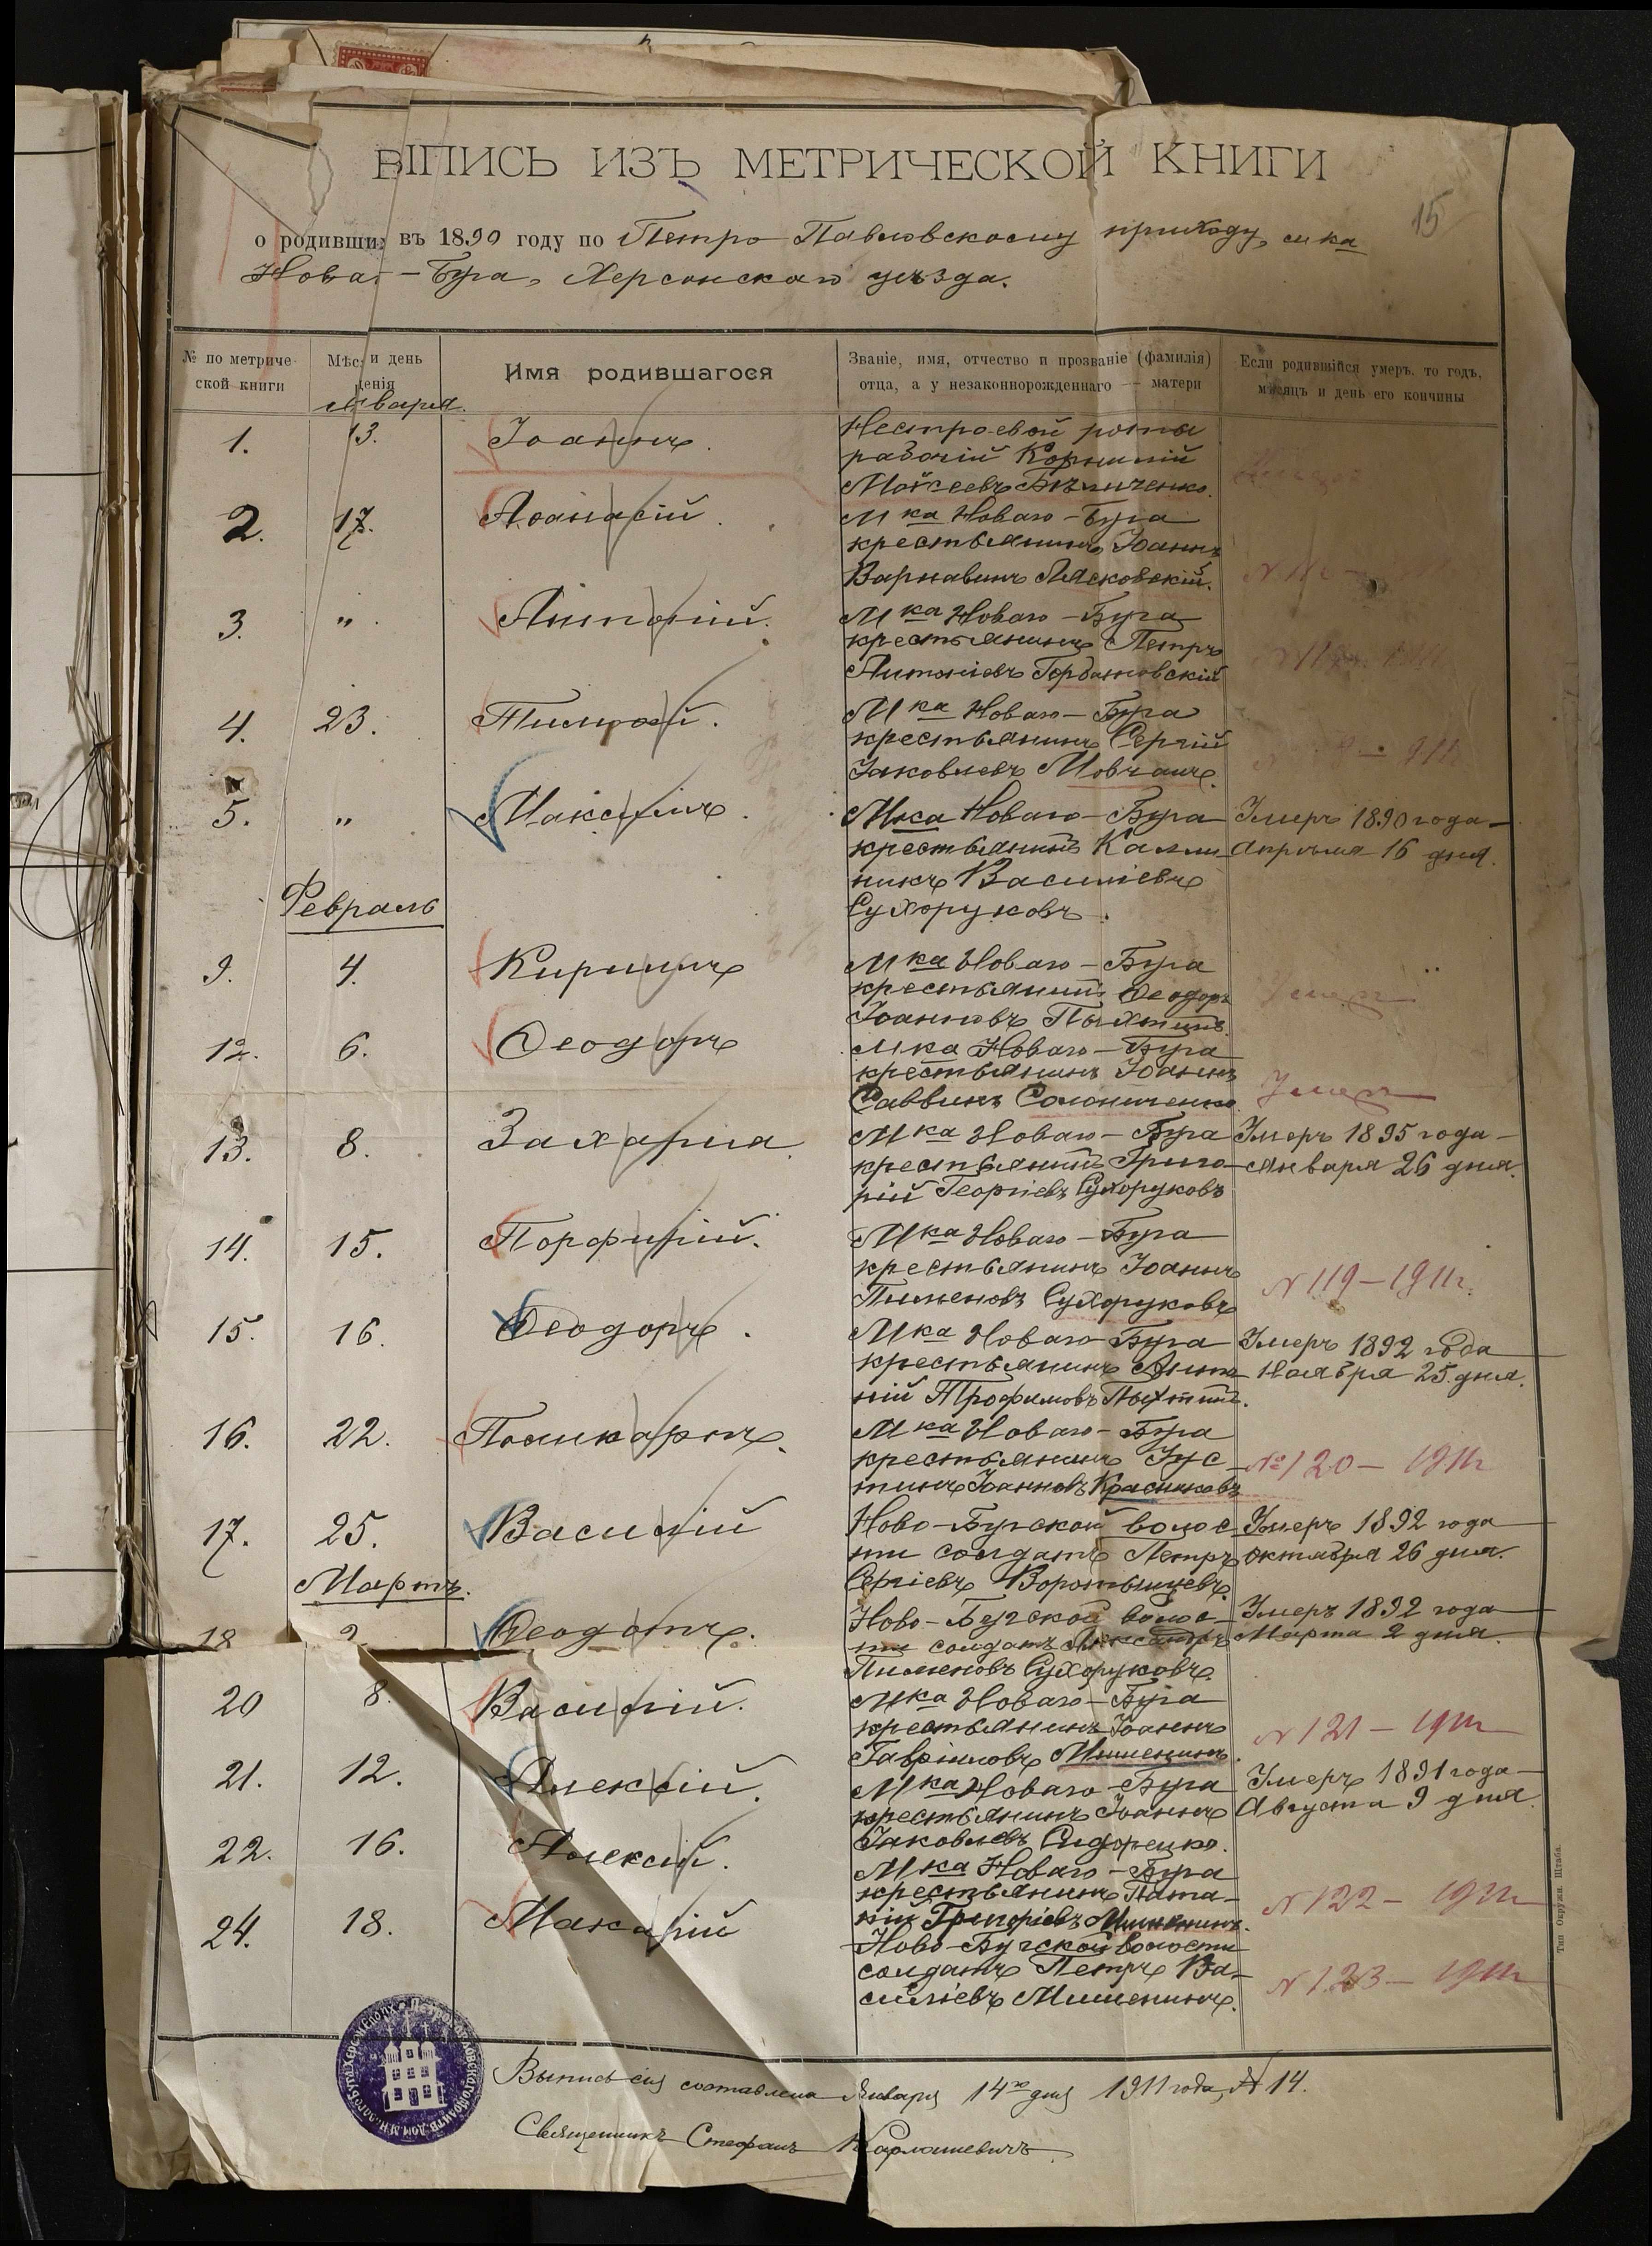 ВЫПИСЬ ИЗЪ МЕТРИЧЕСКОЙ КНИГИ
15
о родивши въ 1890 году по Петро-Павловскому приходу, м-ка
Новаго-Буга, Херсонскаго уѣзда.
№ по метриче-
ской книги
Мѣс и день
денія
Имя родившагося
Званіе, имя, отчество и прозваніе (фамилія)
отца, а у незаконнорожденнаго — матери
Если родившійся умеръ, то годъ,
мѣсяцъ и день его кончины
Января.
1. 13. Іоаннъ. Нестроевой роты
рабочій Корнилій
Моѵсеевъ Бѣличенко.
2. 17. Аѳанасій. М ка Новаго-Буга
крестьянинъ Іоаннъ
Варнавинъ Лясковскій.
3. " Антоній. М ка Новаго-Буга
крестьянинъ Петръ
Антоніевъ Горбановскій
4. 23. Тимоѳей. М ка Новаго-Буга
крестьянинъ Сергій
Іаковлевъ Мовчанъ.
5. " Максимъ. М ка Новаго-Буга Умеръ 1890 года
крестьянинъ Калли- Апрѣля 16 дня.
никъ Василіевъ
Сухоруковъ.
Февраль
9. 4. Кириллъ М ка Новаго-Буга
крестьянинъ Ѳеодоръ Умеръ
Іоанновъ Пыхтинъ.
12. 6. Ѳеодоръ М ка Новаго-Буга
крестьянинъ Іоаннъ
Саввинъ Солониченко. Умеръ
13. 8. Захарія М ка Новаго-Буга Умеръ 1895 года
крестьянинъ Григо- Января 26 дня.
рій Георгіевъ Сухоруковъ
14. 15. Порфирій. М ка Новаго-Буга
крестьянинъ Іоаннъ
Пименовъ Сухоруковъ
N 119-1911г.
15. 16. Ѳеодоръ. М ка Новаго-Буга Умеръ 1892 года
крестьянинъ Анто- Ноября 25 дня.
ній Трофимовъ Пыхтинъ.
16. 22. Поликарпъ. М ка Новаго-Буга
крестьянинъ Іус-
тинъ Іоанновъ Красниковъ
№ 120 - 1911г
17. 25. Василій Ново-Бугской волос- Умеръ 1892 года
ти солдатъ Петръ Октября 26 дня.
Сергіевъ Воротынцевъ.
Мартъ.
18 2 Ѳеодотъ. Ново-Бугской волос- Умеръ 1892 года
ти солдатъ Александръ Марта 2 дня.
Пименовъ Сухоруковъ.
20 8. Василій. М ка Новаго-Буга
крестьянинъ Іоаннъ
Гавріиловъ Мишенинъ.
N 121 - 1911г
21. 12. Алексій. М ка Новаго-Буга Умеръ 1891 года
крестьянинъ Іоаннъ Августа 9 дня.
Іаковлевъ Сидоренко.
22. 16. Алексій. М ка Новаго-Буга
крестьянинъ
Григоріевъ Мишенинъ.
N 122 - 1911г
24. 18. Макарій Ново-Бугской волости
солдатъ Петръ Ва-
силіевъ Мишенинъ.
N 123 - 1911г
Выпись сія составлена Января 14го дня 1911 года, № 14.
Священникъ Стефанъ Карлашевичъ
Тип. Окружн. Штаба.